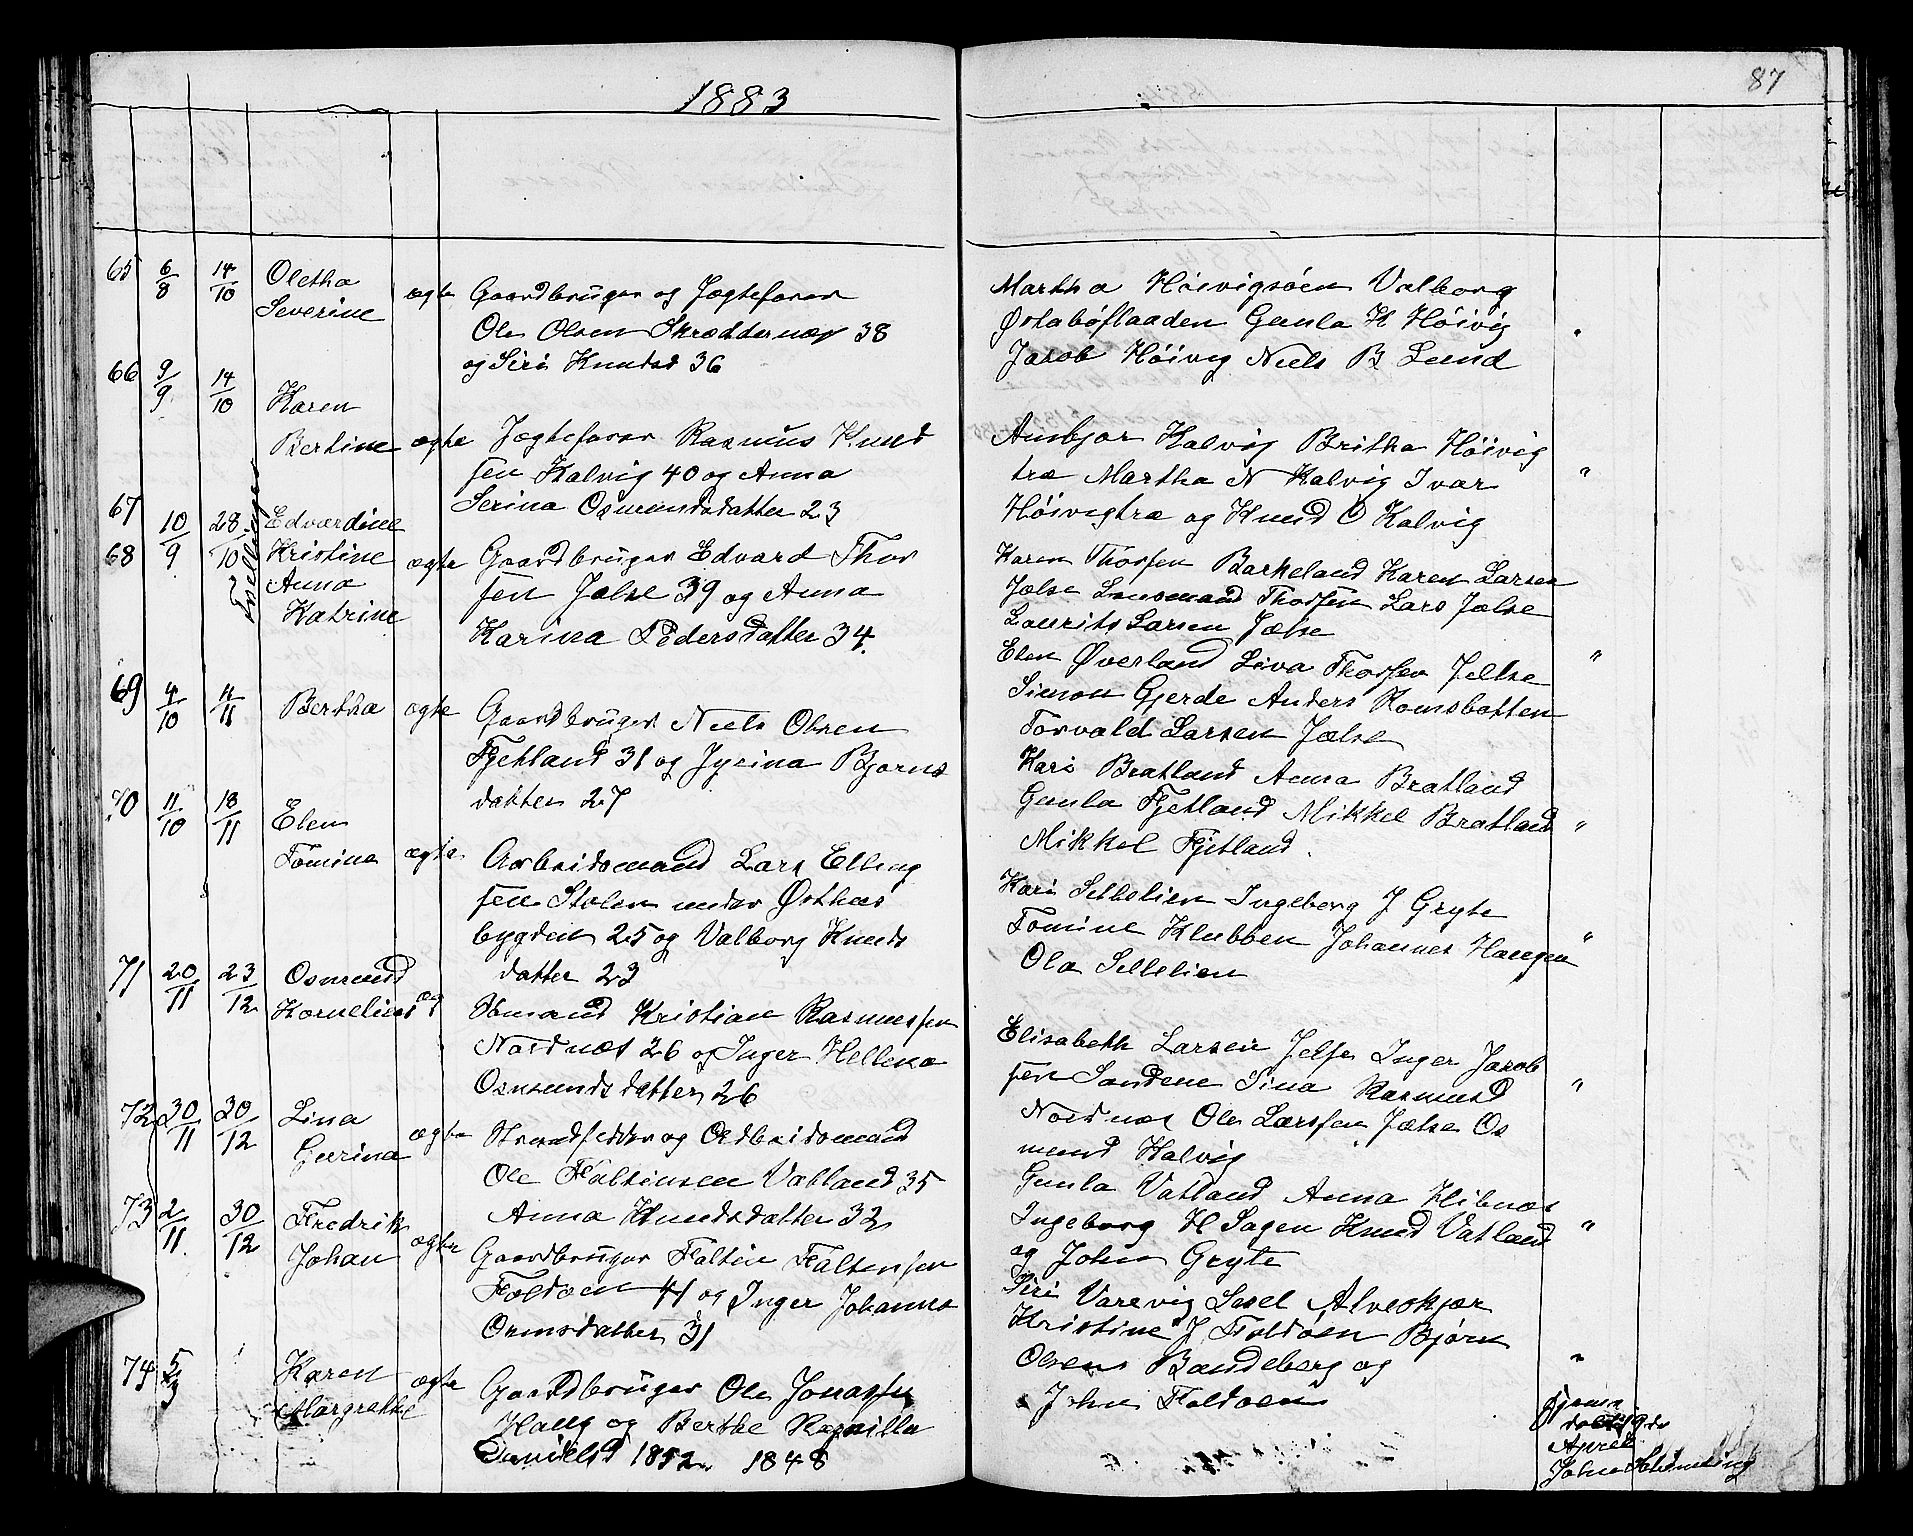 1883
87
65 6/8 14/10 Oletha ægte Gaardbruger og Jægtefører
Severine Ole Olsen Skreddernæs 38
og Siri Knudsd 36
Martha Høivigsøen Valborg
Østabøflaaden Gunla K Høivig "
Jacob Høivig Niels B Lund
66 9/9 14/10 Karen
Bertine ægte Jægtefører Rasmus Knud
sen Kalvig 40 og Anna
Serina Osmundsdatter 23
Ansbjør Kalvig Britha Høivig
træ Martha N Kalvig Ivar "
Høivigtræ og Knud O Kalvig
67 10/9 28/10 Edvardine
68 Kristine ægte Gaardbruger Edvard Thor
Tvillinger
Anna sen Jælse 39 og Anna
Katrine Karina Pedersdatter 34.
Karen Thorsen Barkeland Karen Larsen
Jælse Lensmand Thorsen Lars Jælse
Laurits Larsen Jælse
Elen Øverland Liva Thorsen Jelse "
Simon Gjerde Anders Romsbotten
Torvald Larsen Jælse
69 4/10 4/11 Bertha ægte Gaardbruger Niels Olsen
Fjetland 31 og Jyrina Bjørns
datter 27
Kari Bratland Anna Bratland
Gunla Fjetland Mikkel Bratland "
Mikkel Fjetland.
70 11/10 18/11 Elen
Tomine ægte Arbeidsmand Lars Elling
sen Stølen under Østhus
bygden 25 og Valborg Knuds
datter 23
Kari Sellelien Ingeborg J Gryte
Tomine Klubben Johannes Haugen "
Ola Selleliën
71 20/11 23/12 Osmund
Kornelius æg Stmand Kristian Rasmussen
Nordnæs 26 og Inger Hellena
Osmundsdatter 26
Elisabeth Larsen Jelse Inger Jacob
sen Sandene Sina Rasmusd "
Nordnæs Ole Larssen Jælse Os
mund Kalvig
72 30/11 30/12 Lina ægte Strandsidder og Arbeidsmand
Gurina Ole Faltinsen Vatland 35
Anna Knudsdatter 32
Gunla Vatland Anna Hibnæs
Ingeborg H Sagen Knud Vatland "
og John Gryte
73 2/11 30/12 Fredrik
Johan ægte Gaardbruger Faltin Faltensen
Foldøen 41 og Inger Johanne
Ormsdatter 31
Siri Varevig Lisel Alveskjær
Kristine J Foldøen Bjørn
Olsen Bandeberg og "
John Foldøen
74 Karen ægte Gaardbruger Ole Jonassen
Margrethe Haug og Berthe Ragnilla
Danielsd 1852. 1848
Hjemme
døbt 19de
April
John